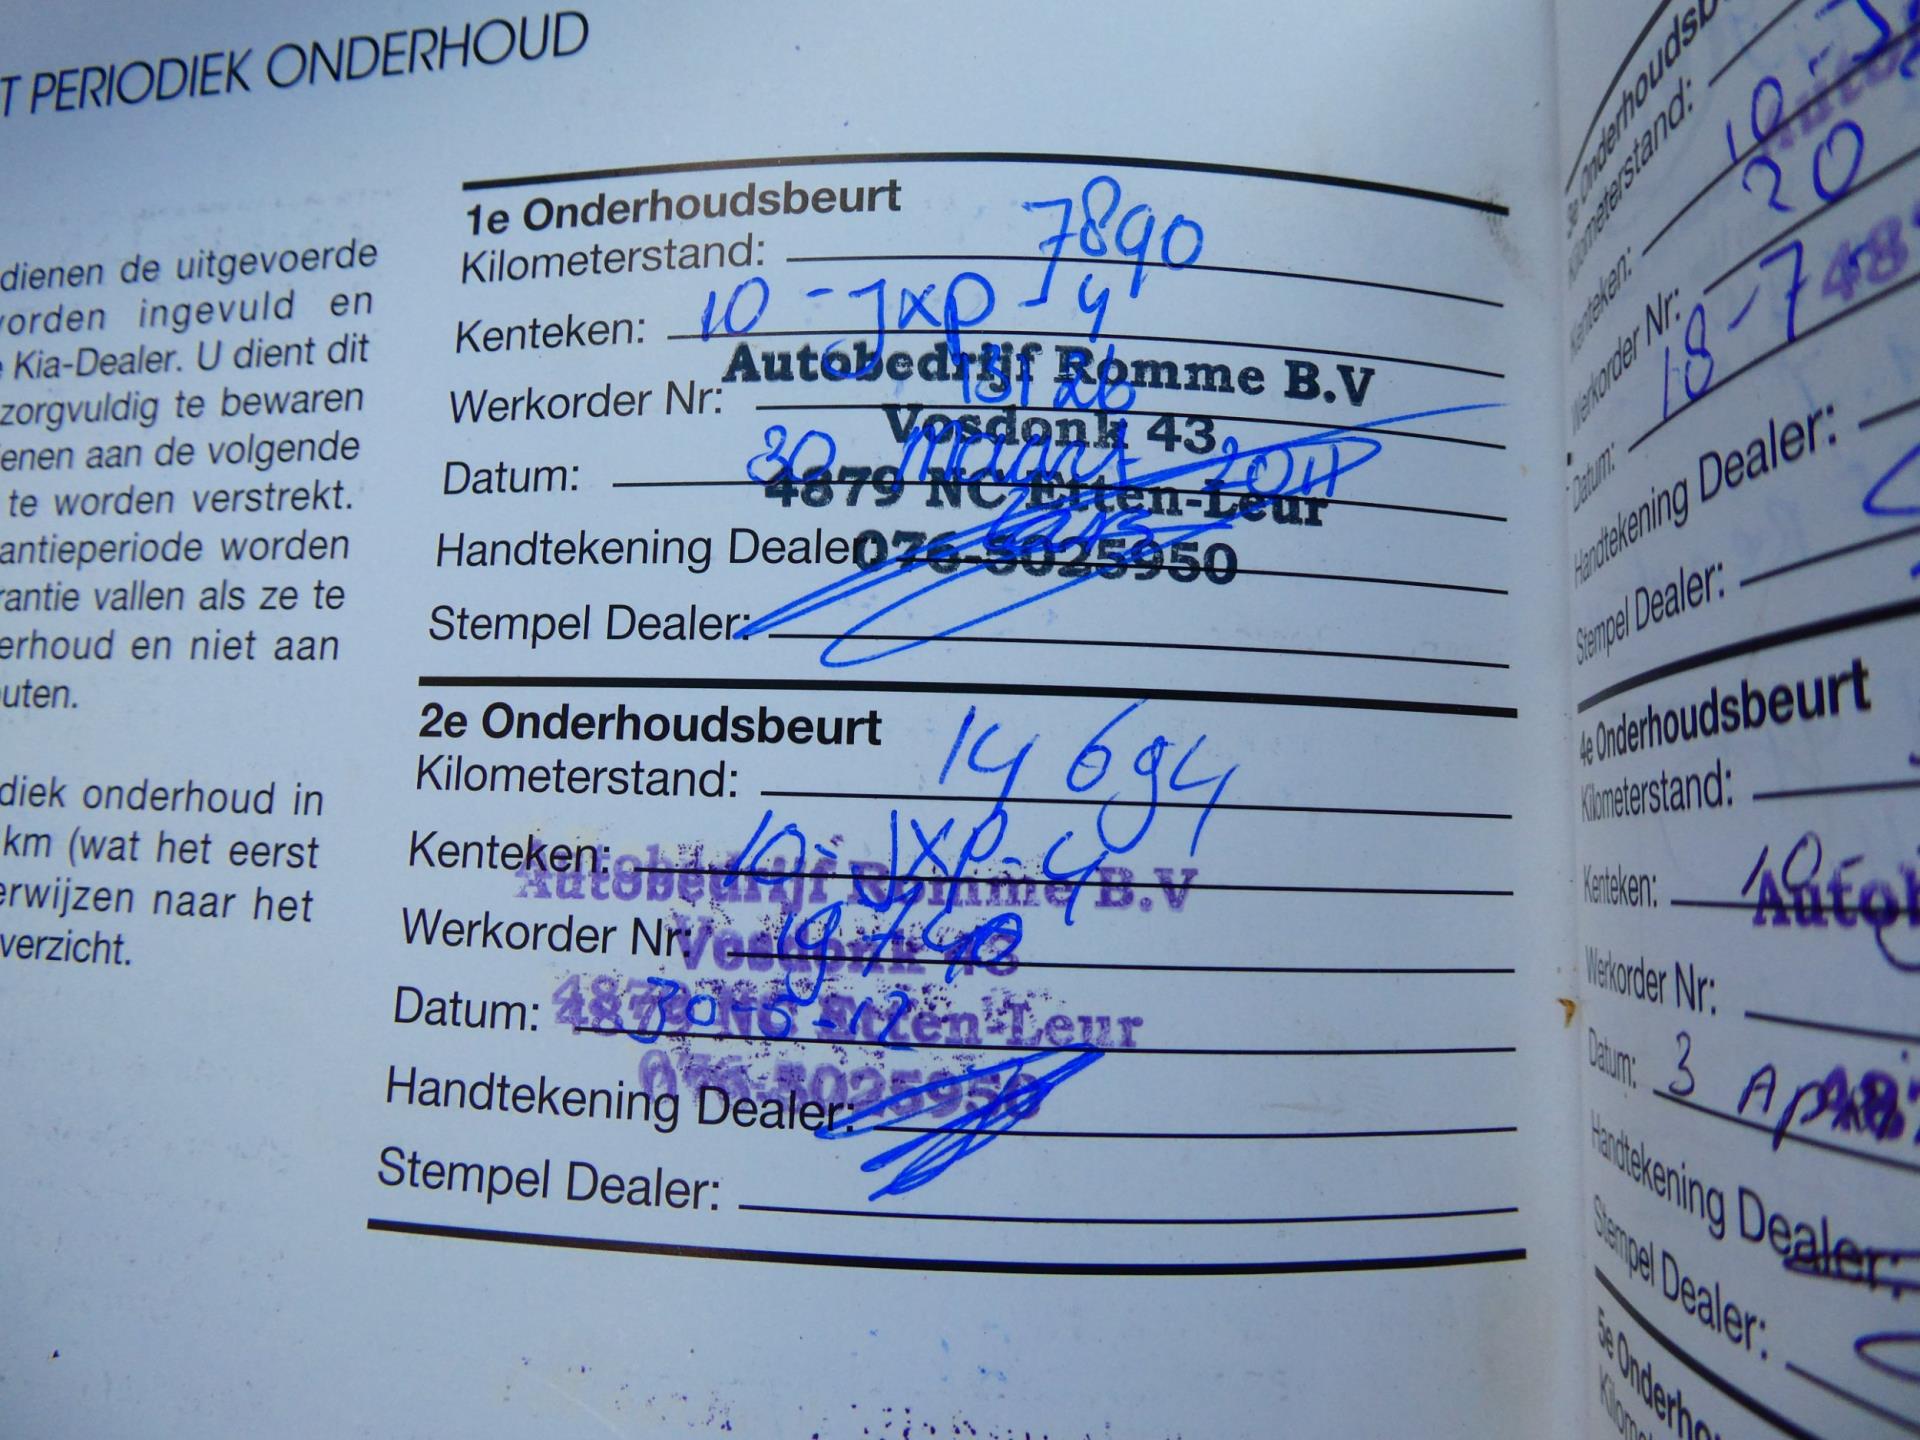 T PERIODIEK ONDERHOUD
dienen de uitgevoerde
worden ingevuld en
Kia-Dealer. U dient dit
zorgvuldig te bewaren
enen aan de volgende
te worden verstrekt.
antieperiode worden
rantie vallen als ze te
erhoud en niet aan
outen.
diek onderhoud in
km (wat het eerst
erwijzen naar het
verzicht.
1e Onderhoudsbeurt
Kilometerstand: 7890
Kenteken: 10-JXP-4
Autobedrijf Romme B.V
Werkorder Nr:
Vosdonk 43
Datum: 30 Maart 2011
4879 NC Etten-Leur
Handtekening Dealer:
076-5025950
Stempel Dealer:
2e Onderhoudsbeurt
Kilometerstand: 14 694
Kenteken: 10-JXP-4
Autobedrijf Romme B.V
Werkorder Nr:
Vosdonk 43
Datum: 30-5-12
4879 NC Etten-Leur
Handtekening Dealer:
076-5025950
Stempel Dealer:
3e Onderhoudsbeu
Kilometerstand:
Kenteken: 10-J
Werkorder Nr: 20
Datum: 18-7-
Handtekening Dealer:
Stempel Dealer:
4e Onderhoudsbeurt
Kilometerstand:
Kenteken: 10-
Autob
Werkorder Nr:
Datum: 3 April
487
Handtekening Dealer:
Stempel Dealer:
5e Onderho
Kilom